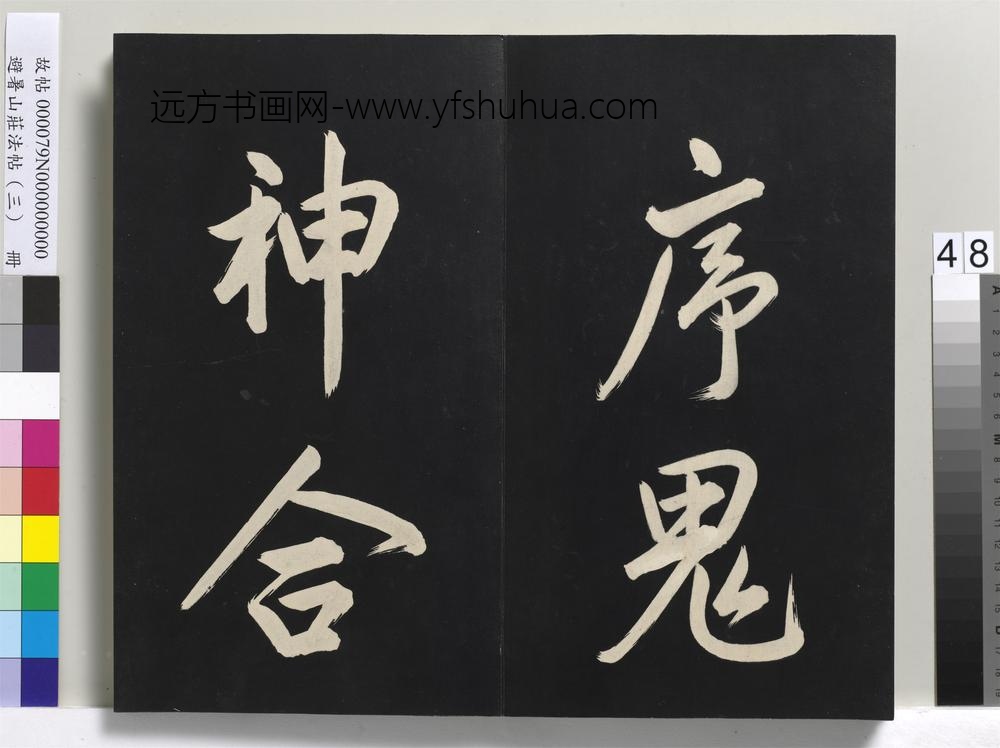 序鬼
神合
远方书画网-www.yfshuhua.com
故帖 000079N000000000
避暑山莊法帖(三) 冊
48